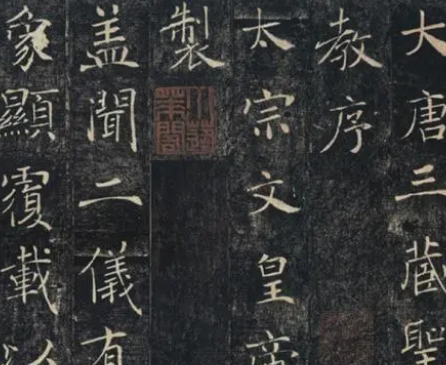 大唐三蔵聖
教序
太宗文皇帝
製
盖聞二儀有
象顯覆載以